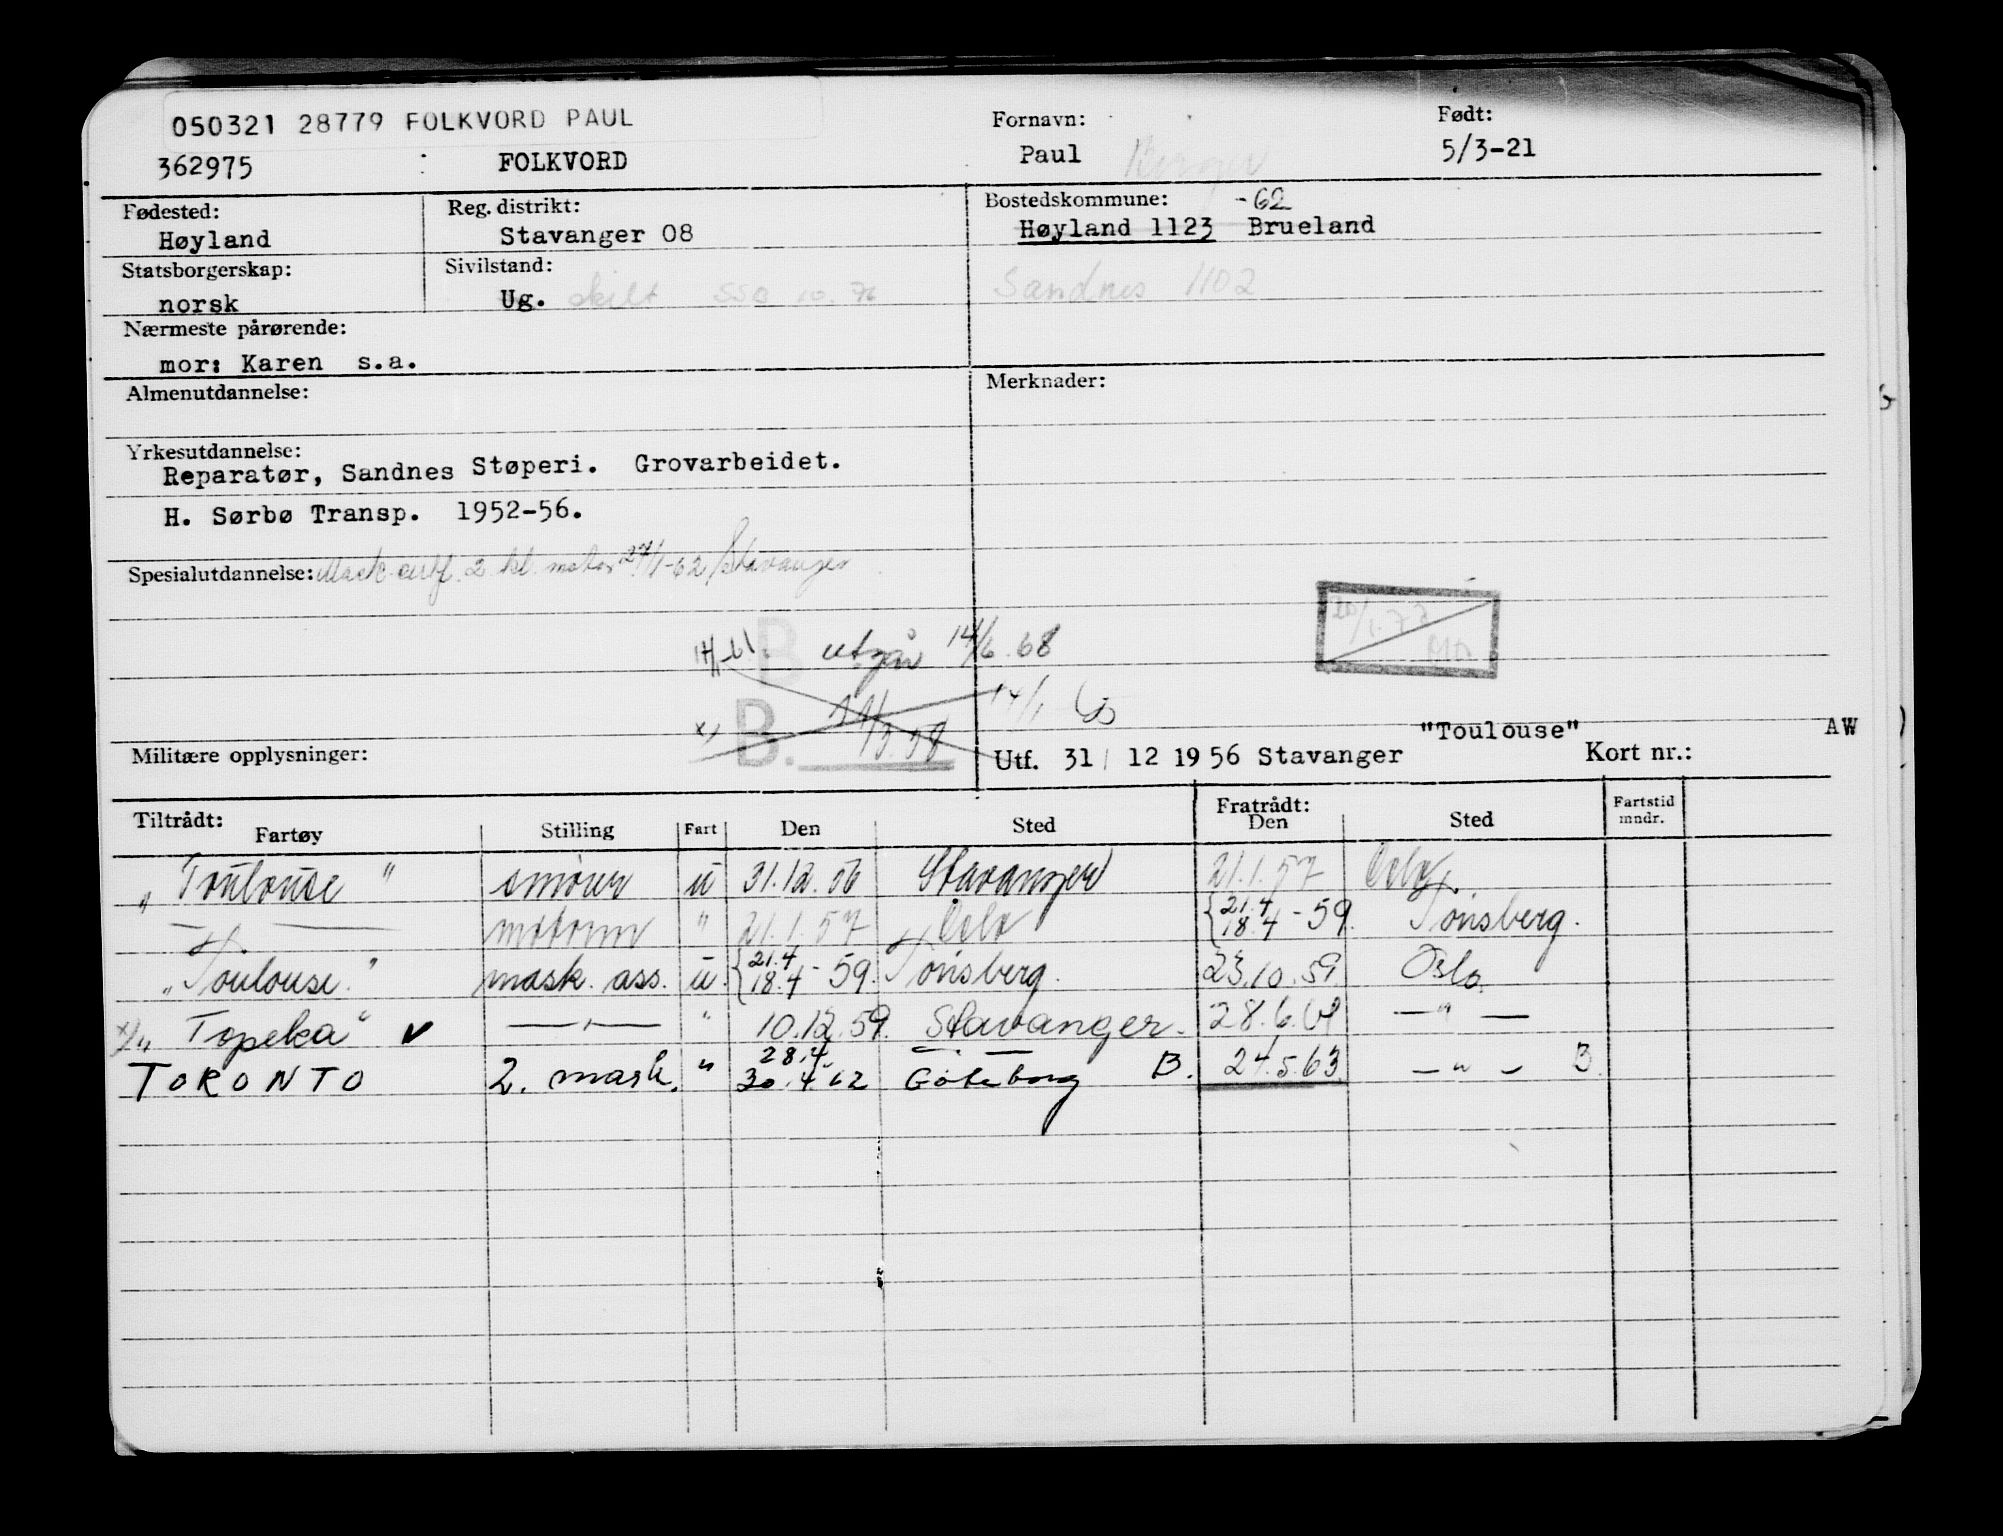 050321 28779 FOLKVORD PAUL
Fornavn: Født:
362975 : FOLKVORD Paul 5/3-21
Fødested: Reg. distrikt: Bostedskommune: -62
Høyland Stavanger 08 Høyland 1123 Brueland
Statsborgerskap: Sivilstand:
norsk Ug. skilt SSØ 10.76 Sandnes 1102
Nærmeste pårørende:
mor: Karen s.a.
Almenutdannelse: Merknader:
Yrkesutdannelse:
Reparatør, Sandnes Støperi. Grovarbeidet.
H. Sørbø Transp. 1952-56.
Spesialutdannelse: Mask. 2. kl. motor 27/1-62 Stavanger
B utgår 14/6.68
x) B. 14/1
"Toulouse" AW
Militære opplysninger: Utf. 31/ 12 1956 Stavanger Kort nr.:
Tiltrådt: Fratrådt: Fartstid
Fartøy Stilling Fart Den Sted Den Sted mndr.
"Toulouse" smører u 31.12.56 Stavanger 21.1.57 Oslo
— " — motorm " 21.1.57 Oslo {21.4 18.4 - 59. Tønsberg.
"Toulouse" mask. ass. u. {21.4 18.4 - 59. Tønsberg. 23.10.59. Oslo
x/ "Topeka" v — " — " 10.12.59. Stavanger. 28.6.61 — " —
28.4.
TORONTO 2. mask. " 30.4.62 Göteborg B. 24.5.63 — " — B.